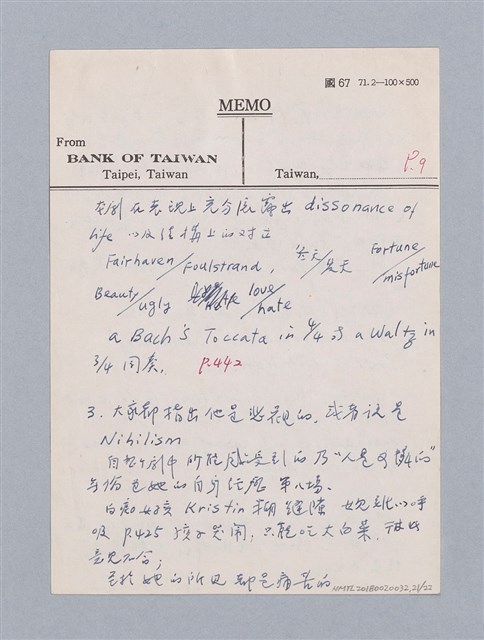 國 67 71.2—100×500
MEMO
From
BANK OF TAIWAN
Taipei, Taiwan
Taiwan,
P.9
本劇在表現上充分流露出 dissonance of
life 以及結構上的對立
Fairhaven/Foulstrand, 冬天/夏天 Fortune/misfortune
Beauty/ugly love/hate
a Bach's Toccata in 4/4 與 a Waltz in
3/4 同奏. P.442
3. 大家都指出他是悲觀的, 或者說是
Nihilism
自整個劇中所能感受到的乃"人是可憐的"
第八場.
女孩 Kristin 糊縫隙 她難以呼
吸 P.425 孩子哭鬧, 只能吃大白菜, 彼此
意見不合;
至於她的所見都是痛苦的
NMTL20180020032_21/22